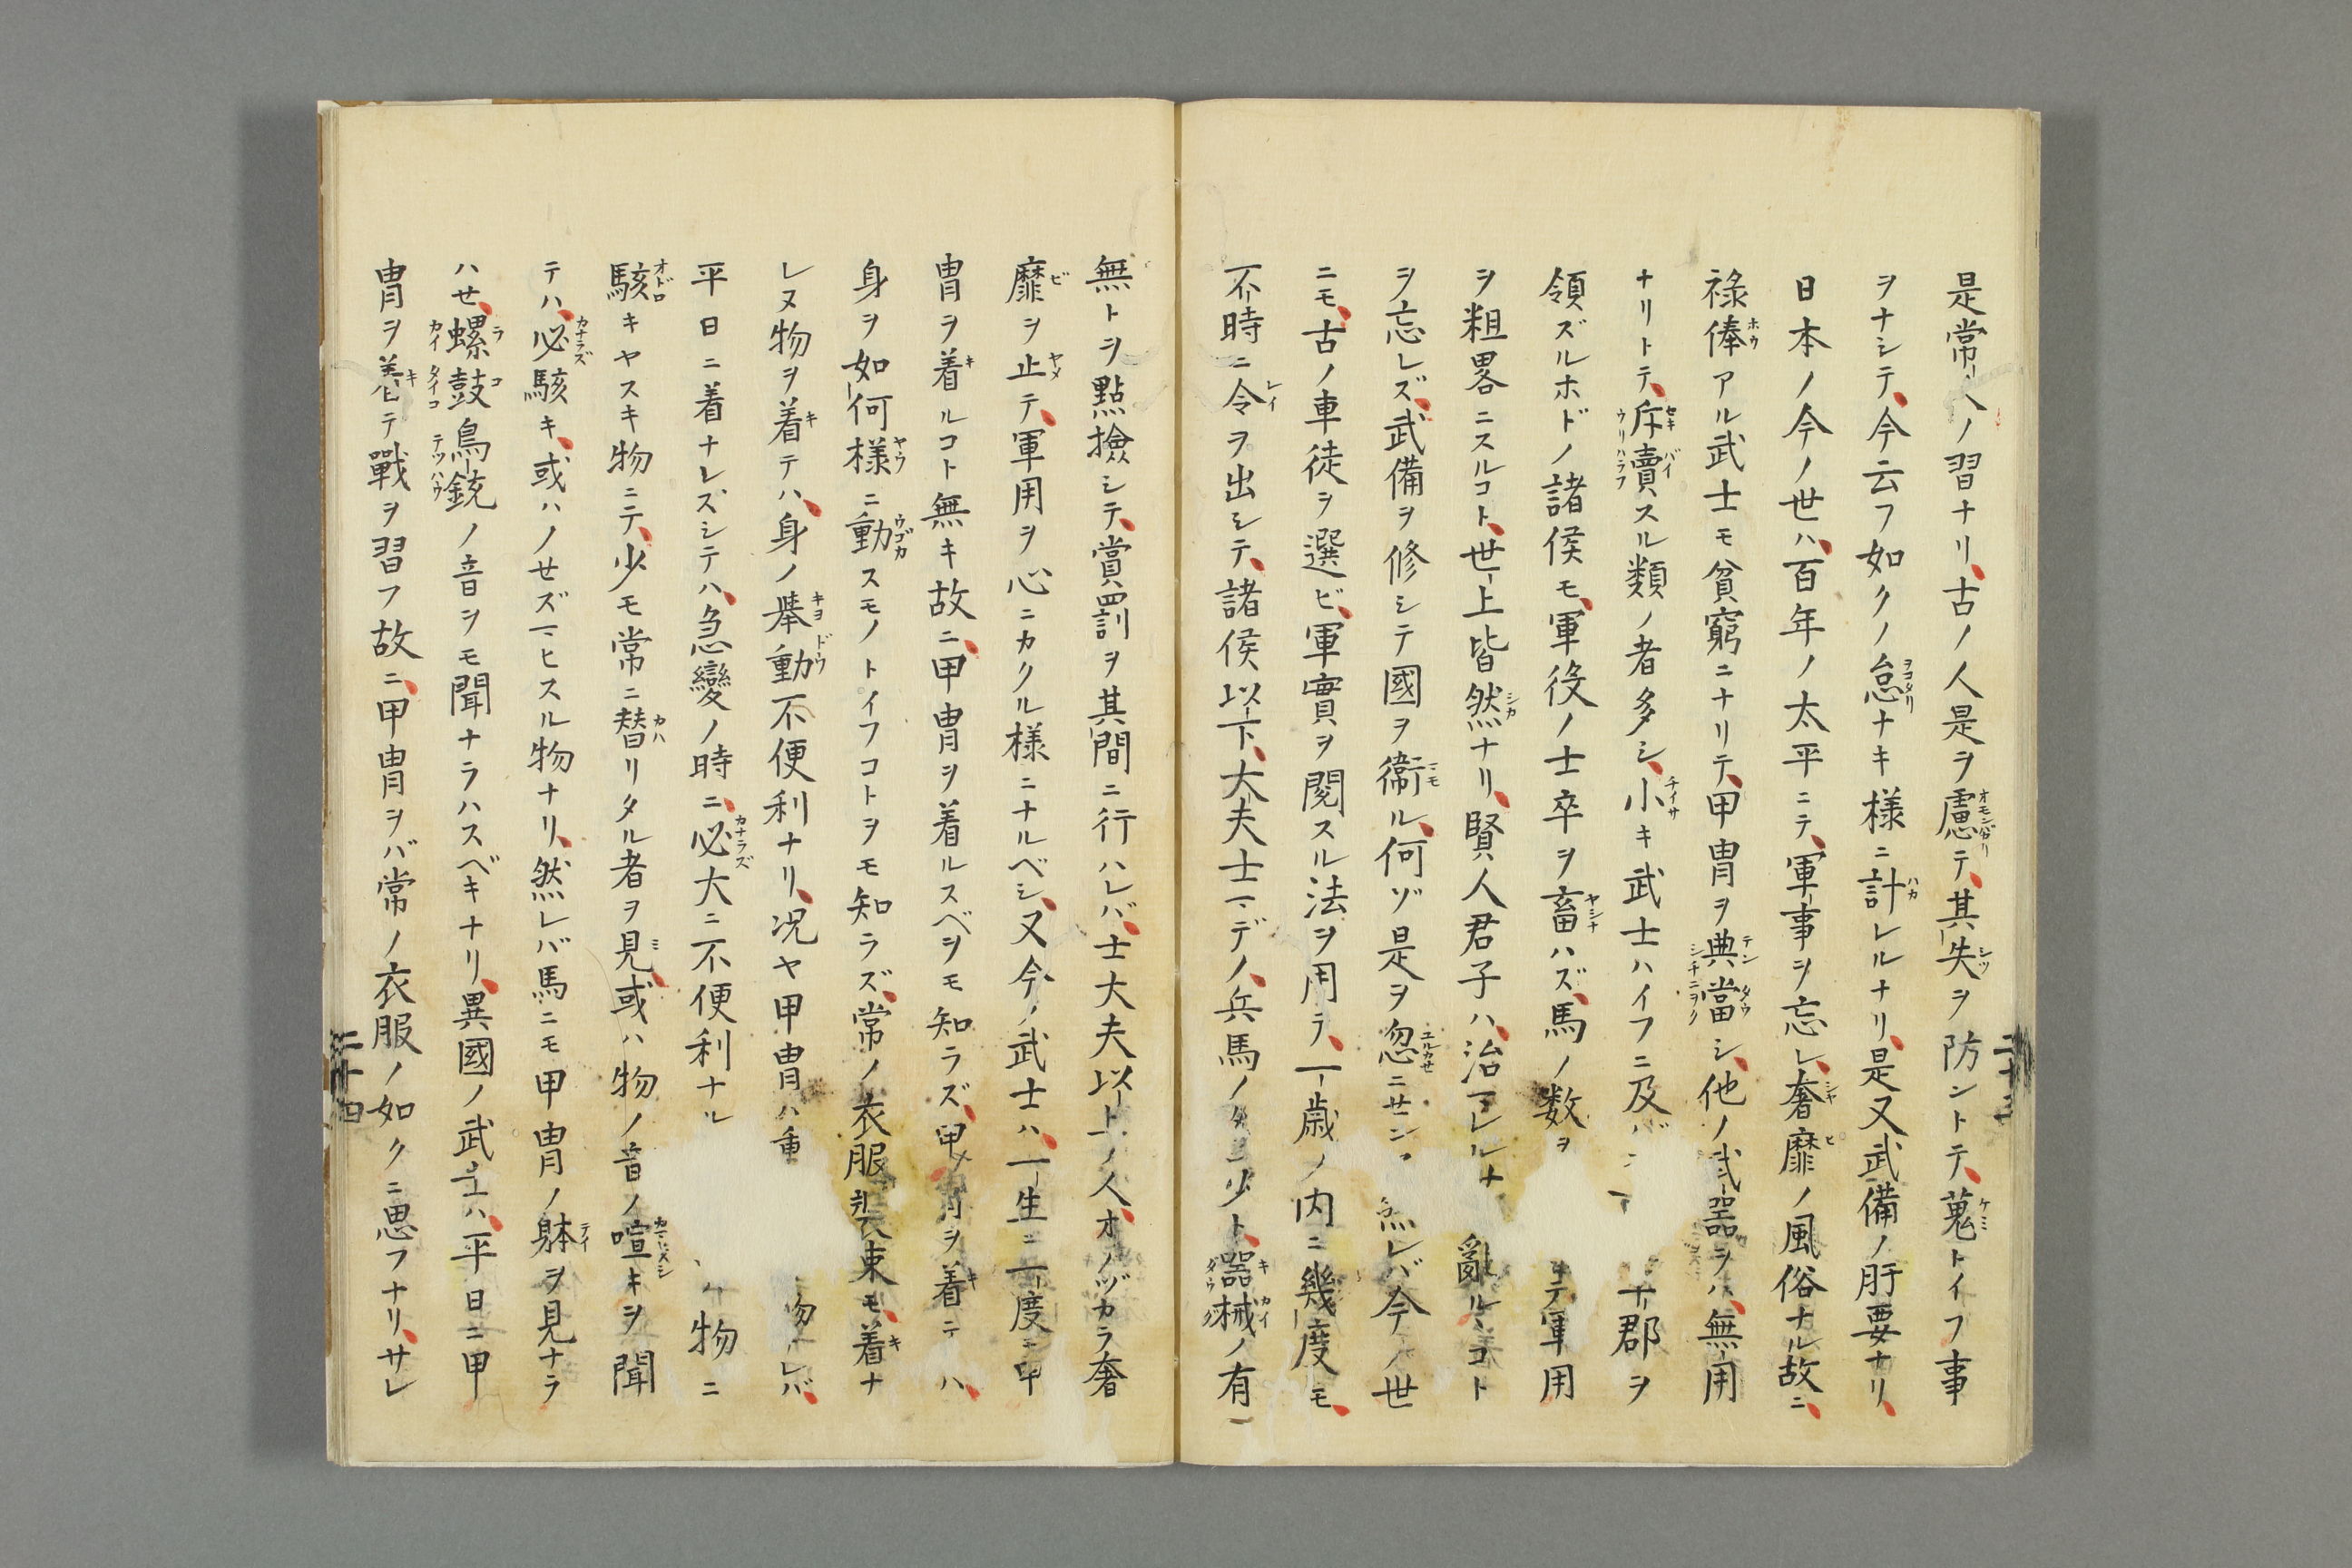 是常人ノ習ナリ、古ノ人是ヲ慮テ、其失ヲ防ントテ、蒐トイフ事
ヲナシテ、今云フ如クノ怠ナキ様ニ計レルナリ、是又武備ノ肝要ナリ、
日本ノ今ノ世ハ、百年ノ太平ニテ、軍事ヲ忘レ、奢靡ノ風俗ナル故ニ、
禄俸アル武士モ貧窮ニナリテ、甲冑ヲ典當シ、他ノ武器ヲハ、無用
ナリトテ、斥賣スル類ノ者多シ、小キ武士ハイフニ及バ 郡ヲ
領ズルホドノ諸侯モ、軍役ノ士卒ヲ畜ハズ、馬ノ数ヲ テ軍用
ヲ粗畧ニスルコト、世上皆然ナリ、賢人君子ハ、治 レルナ 亂ルヽコト
ヲ忘レズ、武備ヲ修シテ國ヲ衞ル、何ゾ是ヲ忽ニセン 然レバ今ノ世
ニモ、古ノ車徒ヲ選ビ、軍實ヲ閲スル法ヲ用テ、一歳ノ内ニ幾度モ、
不時ニ令ヲ出シテ、諸侯以下、大夫士マデノ、兵馬ノ多少ト、器械ノ有
無トヲ點撿シテ、賞罰ヲ其間ニ行ハレバ、士大夫以上ノ人、オノヅカラ奢
靡ヲ止テ、軍用ヲ心ニカクル様ニナルベシ、又今ノ武士ハ、一生ニ一度モ甲
冑ヲ着ルコト無キ故ニ、甲冑ヲ着ルスベヲモ知ラズ、甲冑ヲ着テハ、
身ヲ如何様ニ動スモノトイフコトヲモ知ラズ、常ノ衣服装束モ、着ナ
レヌ物ヲ着テハ、身ノ擧動不便利ナリ、况ヤ甲冑ハ重 物 レバ、
平日ニ着ナレズシテハ、急變ノ時ニ、必大ニ不便利ナル 物ニ
駭キヤスキ物ニテ、少モ常ニ替リタル者ヲ見、或ハ物ノ音ノ喧キヲ聞
テハ、必駭キ、或ハノせズマヒスル物ナリ、然レバ馬ニモ甲冑ノ躰ヲ見ナラ
ハせ、螺鼓鳥銃ノ音ヲモ聞ナラハスベキナリ、異國ノ武士ハ、平日ニ甲
冑ヲ着テ戰ヲ習フ故ニ、甲冑ヲバ常ノ衣服ノ如クニ思フナリ、サレ
二十四